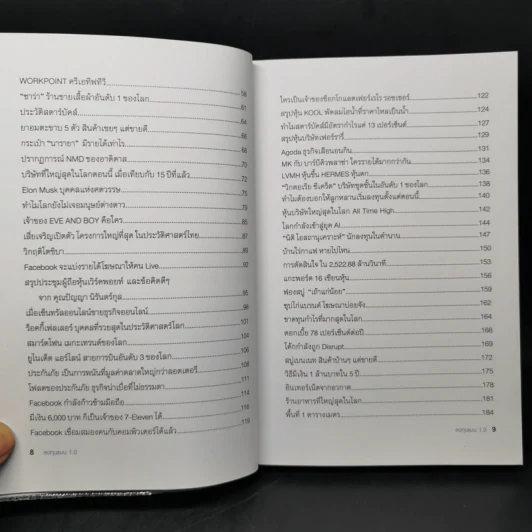 WORKPOINT ครีเอทีฟทีวี
"ซาร่า" ร้านขายเสื้อผ้าอันดับ 1 ของโลก 58
ประวัติสตาร์บัคส์ 61
ยาอมตะขาบ 5 ตัว สินค้าเชยๆ แต่ขายดี 64
กระเป๋า "นารายา" มีรายได้เท่าไร
ปรากฏการณ์ NMD ของอาดิดาส
บริษัทที่ใหญ่สุดในโลกตอนนี้ เมื่อเทียบกับ 15 ปีที่แล้ว 70
Elon Musk บุคคลแห่งศตวรรษ 72
ทำไมโลกยังไม่เจอมนุษย์ต่างดาว 75
เจ้าของ EVE AND BOY คือใคร
เสี่ยเจริญเปิดตัว โครงการใหญ่ที่สุด ในประวัติศาสตร์ไทย
วิกฤติโตชิบา 87
Facebook จะแบ่งรายได้โฆษณาให้คน Live 90
สรุปประชุมผู้ถือหุ้นเวิร์คพอยท์ และข้อคิดดีๆ
จาก คุณปัญญา นิรันดร์กุล
เมื่อเซ็นทรัลออนไลน์ขายธุรกิจออนไลน์
ร็อคกี้เฟลเลอร์ บุคคลที่รวยสุดในประวัติศาสตร์โลก
สมาร์ตโฟน เมกะเทรนด์ของโลก
ยูไนเต็ด แอร์ไลน์ สายการบินอันดับ 3 ของโลก
ประกันภัย เป็นการพนันที่มูลค่าตลาดใหญ่กว่าลอตเตอรี่
โฟลตของประกันภัย ธุรกิจน่าเบื่อที่ไม่ธรรมดา
Facebook กำลังก้าวข้ามมือถือ
มีเงิน 6,000 บาท ก็เป็นเจ้าของ 7-Eleven ได้ 116
Facebook เชื่อมสมองคนกับคอมพิวเตอร์ได้แล้ว 118
8 ลงทุนแมน 1.0
ใครเป็นเจ้าของช็อกโกแลตเฟอร์เรโร รอชเชอร์ 122
สรุปหุ้น KOOL พัดลมไอน้ำที่ราคาไหลเป็นน้ำ 124
ทำไมสตาร์บัคส์มีอัตรากำไรแค่ 13 เปอร์เซ็นต์ 127
สรุปหุ้นบริษัทเฟอร์รารี่ 129
Agoda ธุรกิจเสือนอนกิน 131
MK กับ บาร์บีคิวพลาซ่า ใครรายได้มากกว่ากัน 134
LVMH หุ้นขึ้น HERMES หุ้นตก 136
"วิกตอเรีย ซีเคร็ต" บริษัทชุดชั้นในอันดับ 1 ของโลก 138
ทำไมต้องบอกให้ลูกหลานเริ่มลงทุนตั้งแต่ตอนนี้ 140
หุ้นบริษัทใหญ่สุดในโลก All Time High 142
โลกกำลังเข้าสู่ยุค AI 145
"นิติ โอสถานุเคราะห์" นักลงทุนในตำนาน 147
บ้านไร่กาแฟ หายไปไหน 150
การตัดสินใจ ใน 2,522.88 ล้านวินาที 153
แกะพอร์ต 16 เซียนหุ้น 156
ฟองสบู่ "เถ้าแก่น้อย" 159
ซุปไก่แบรนด์ โฆษณาบ่อยจัง 162
ขาดทุนกำไรที่มากสุดในโลก 164
ดอกเบี้ย 78 เปอร์เซ็นต์ต่อปี 168
โค้กกำลังถูก Disrupt 169
สบู่เบนเนท สินค้าบ้านๆ แต่ขายดี 172
วิธีมีเงิน 1 ล้านบาทใน 5 ปี 175
อินเทอร์เน็ตจากอวกาศ 178
ร้านอาหารที่ใหญ่สุดในโลก 181
พื้นที่ 1 ตารางเมตร 184
ลงทุนแมน 1.0 9